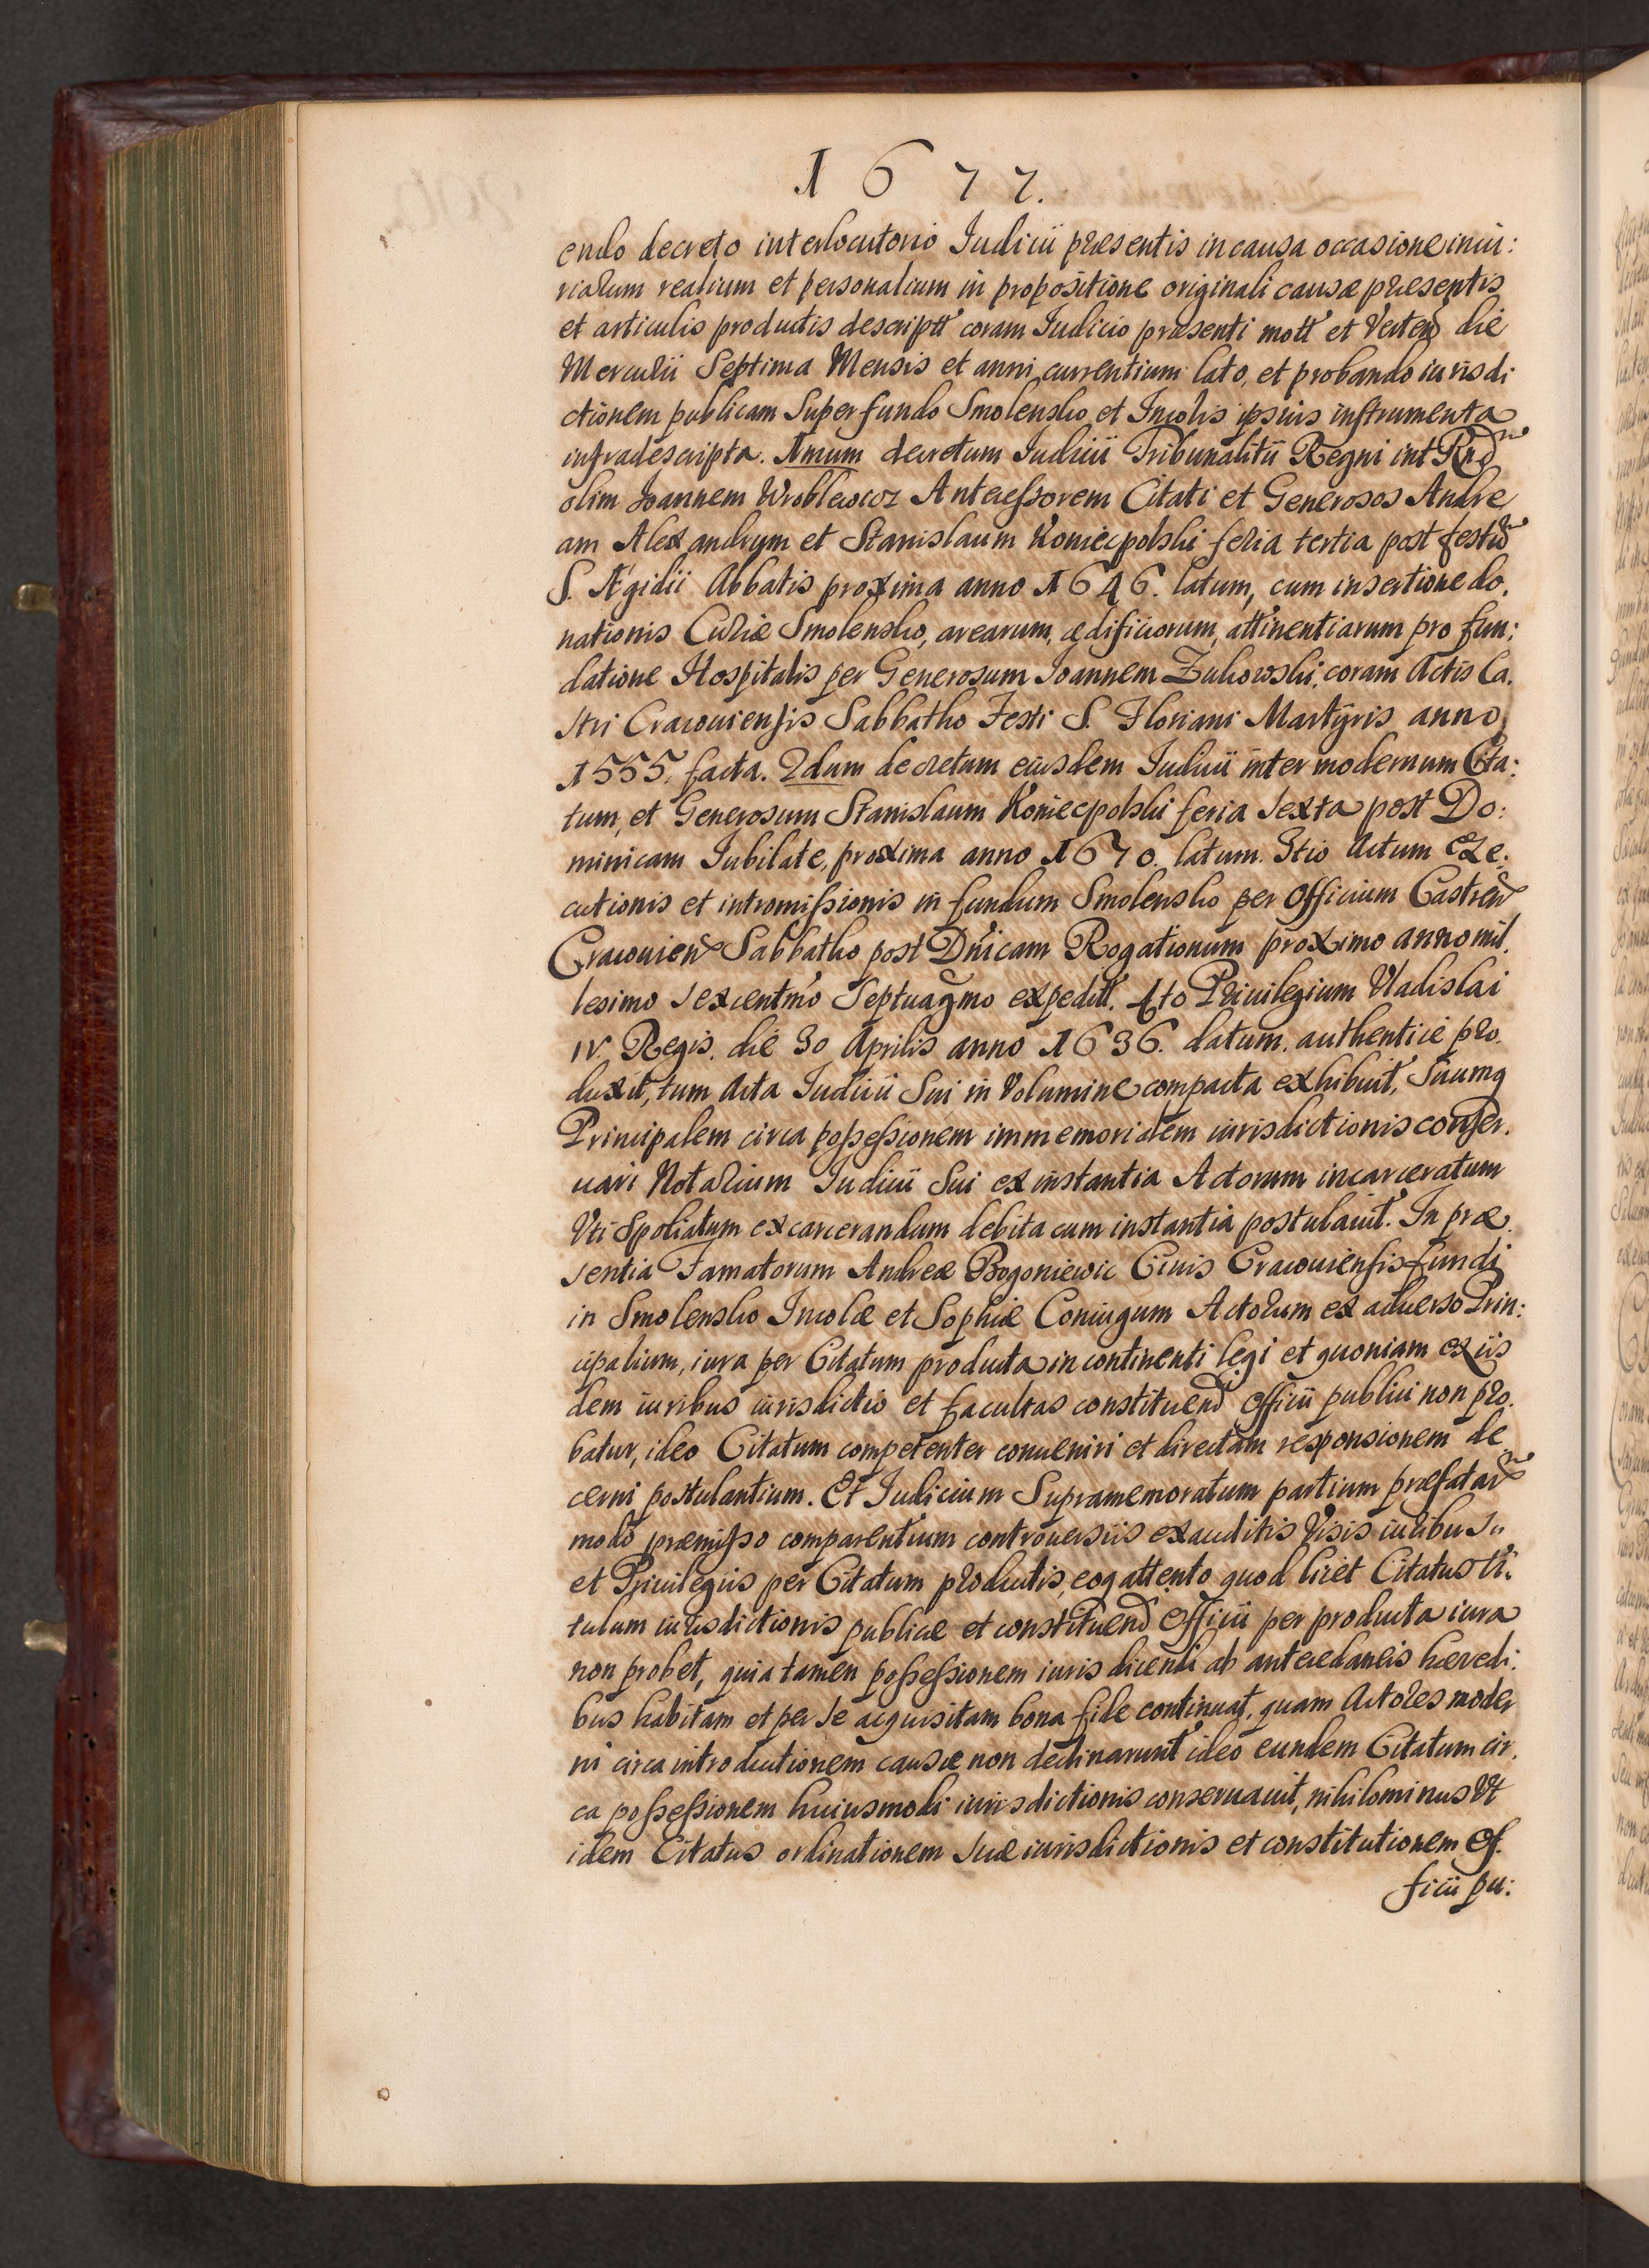 1677.
endo decreto interlocutorio Iudicii præsentis in causa occasione iniu:
riarum realium et personalium in propositione originali causæ præsentis
et articulis productis descriptt coram Iudicio præsenti mott et Verten die
Mercurii Septima Mensis et anni currentium lato, et probando iurisdi
ctionem publicam Super fundo Smolensko et Incolis ipsius instrumenta
infradescripta. Imum decretum Iudicii Tribunalitii Regni int Rnd
olim Joannem Wroblewicz Antecessorem Citati et Generosos Andre
am Alexandrum et Stanislaum Koniecpolski feria tertia post festu
S. Ægidii Abbatis proxima anno 1646. latum, cum insertione do.
nationis Curiæ Smolensko, arearum, ædificiorum, attinentiarum pro fun:
datione Hospitalis per Generosum Joannem Zukowski, coram Actis Ca.
stri Cracouiensis Sabbatho Festi S. Floriani Martyris anno
1555. facta. 2dum decretum eiusdem Iudicii inter modernum Cita:
tum, et Generosum Stanislaum Koniecpolski feria sexta post Do:
minicam Iubilate, proxima anno 1670. latum. 3tio Actum Exe:
cutionis et intromissionis in fundum Smolensko per Officium Castren
Cracouien Sabbatho post Dnicam Rogationum proximo anno mil.
lesimo sexcentmo Septuagmo expeditt. 4to Priuilegium Vladislai
IV. Regis. die 30 Aprilis anno 1636. datum. authentice pro.
duxit, tum Acta Iudicii Sui in Volumine compacta exhibuit, Suumq
Principalem circa possessionem immemorialem iurisdictionis conser.
uari Notarium Iudicii Sui ex instantia Actorum incarceratum
Vti Spoliatum excarcerandum debita cum instantia postulauit. In præ.
sentia Famatorum Andreæ Bogoniewic Ciuis Cracouiensis fundi
in Smolensko Incolæ et Sophiæ Coniugum Actorum ex aduerso Prin:
cipalium, iura per Citatum producta in continenti legi et quoniam ex iis
dem iuribus iurisdictio et facultas constituend Officii publici non pro.
batur, ideo Citatum competenter conueniri et directam responsionem de
cerni postulantium. Et Iudicium Supramemoratum partium præfatar
modo præmisso comparentium controuersiis exauditis Visis iuribus
et Priuilegiis per Citatum productis, eoq attento quod licet Citatus ti:
tulum iurisdictionis publicæ et constituend Officii per producta iura
non probet, quia tamen possessionem iuris dicendi ab antecedaneis hæredi:
bus habitam et per se acquisitam bona fide continuat, quam Actores moder
ni circa introductionem causæ non declinarunt ideo eundem Citatum cir.
ca possessionem huiusmodi iurisdictionis conseruauit, nihilominus Vt
idem Citatus ordinationem suæ iurisdictionis et constitutionem Of.
ficii pu: